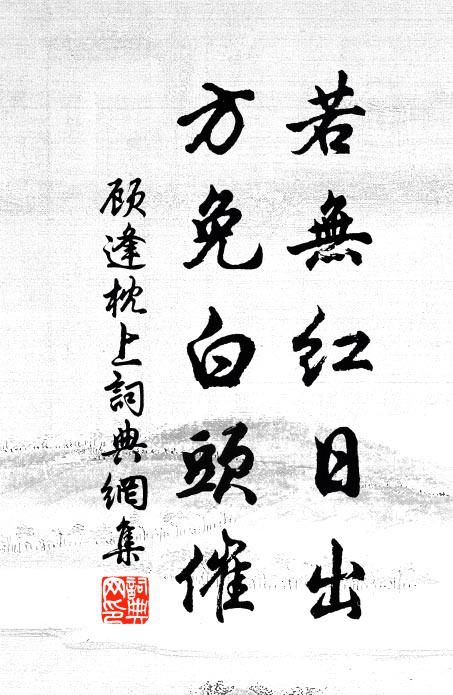 若無紅日出
方免白頭催
顾逢枕上詞典網集
詞典
网印